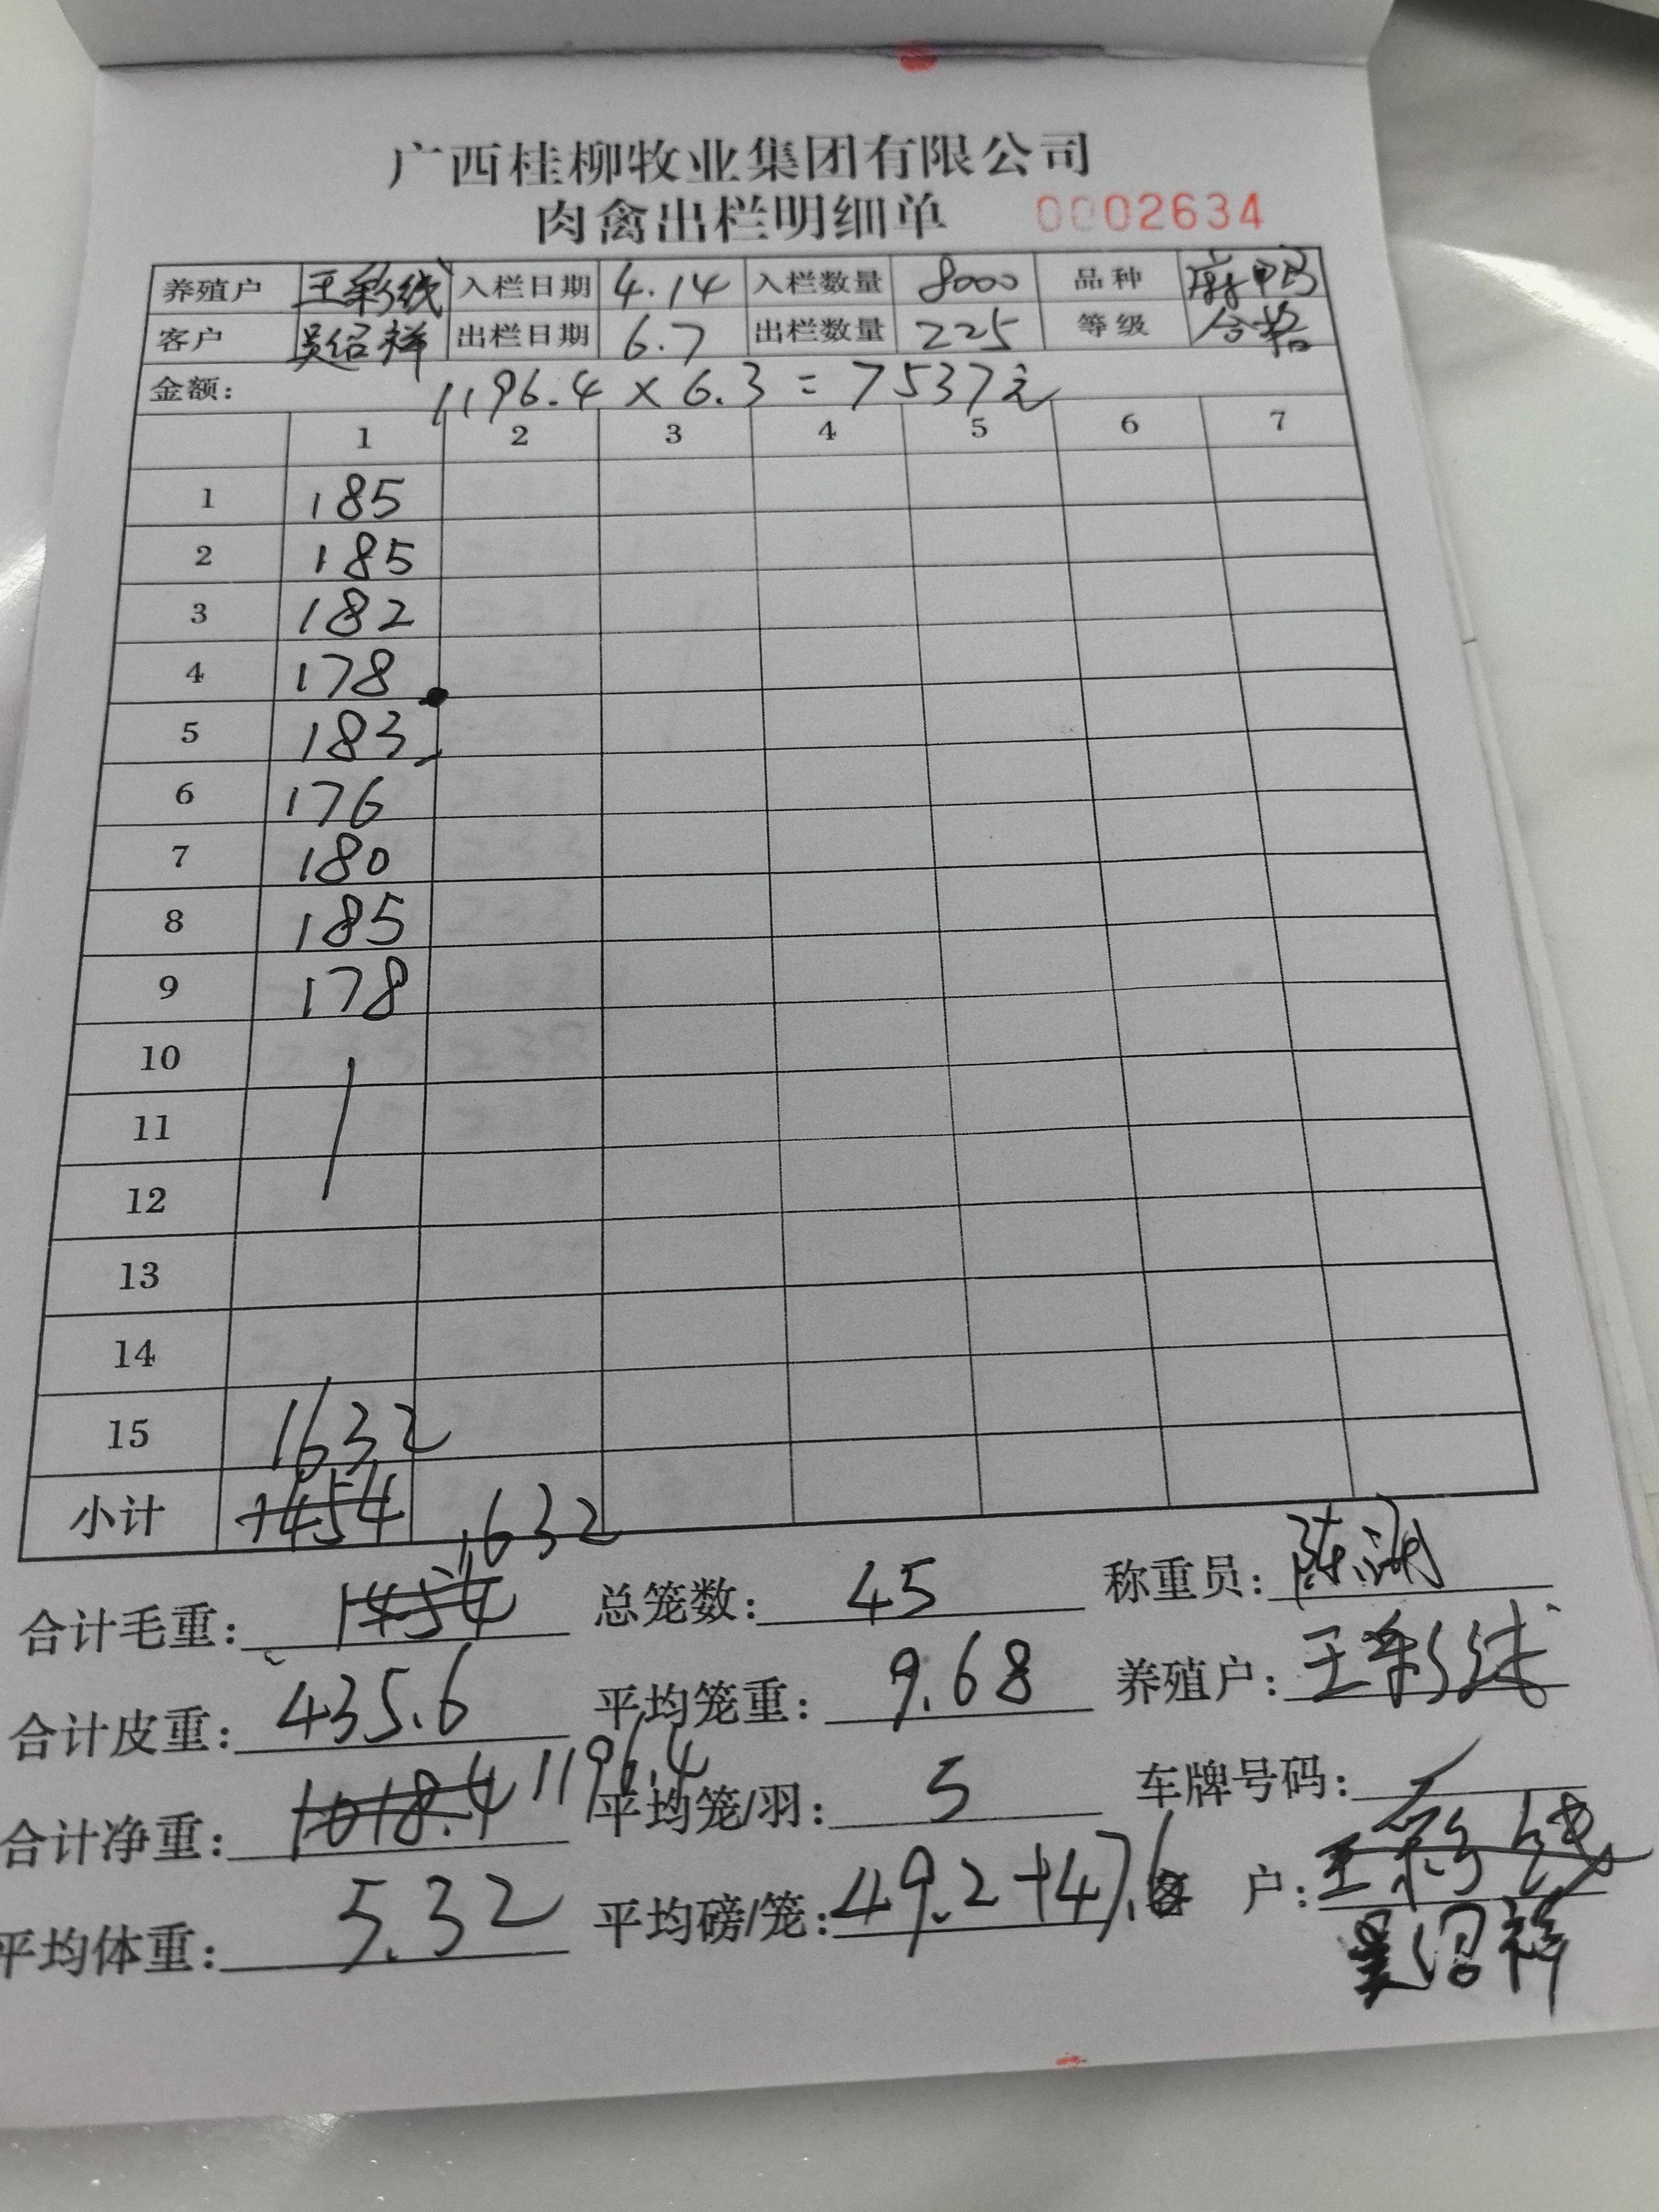 广西桂柳牧业集团有限公司
肉禽出栏明细单 0002634
养殖户 王彩线 入栏日期 4.14 入栏数量 8000 品种 麻鸭
客户 吴绍祥 出栏日期 6.7 出栏数量 225 等级 合格
金额: 1196.4 × 6.3 = 7537元
1 2 3 4 5 6 7
1 185
2 185
3 182
4 178
5 183
6 176
7 180
8 185
9 178
10
11
12
13
14
15 1632
小计 1454 1632
合计毛重: 1454 总笼数: 45 称重员:
合计皮重: 435.6 平均笼重: 9.68 养殖户: 王彩线
合计净重: 1018.4 1196.4 平均笼/羽: 5 车牌号码:
平均体重: 5.32 平均磅/笼: 49.2+47.6 户: 王彩线
吴绍祥